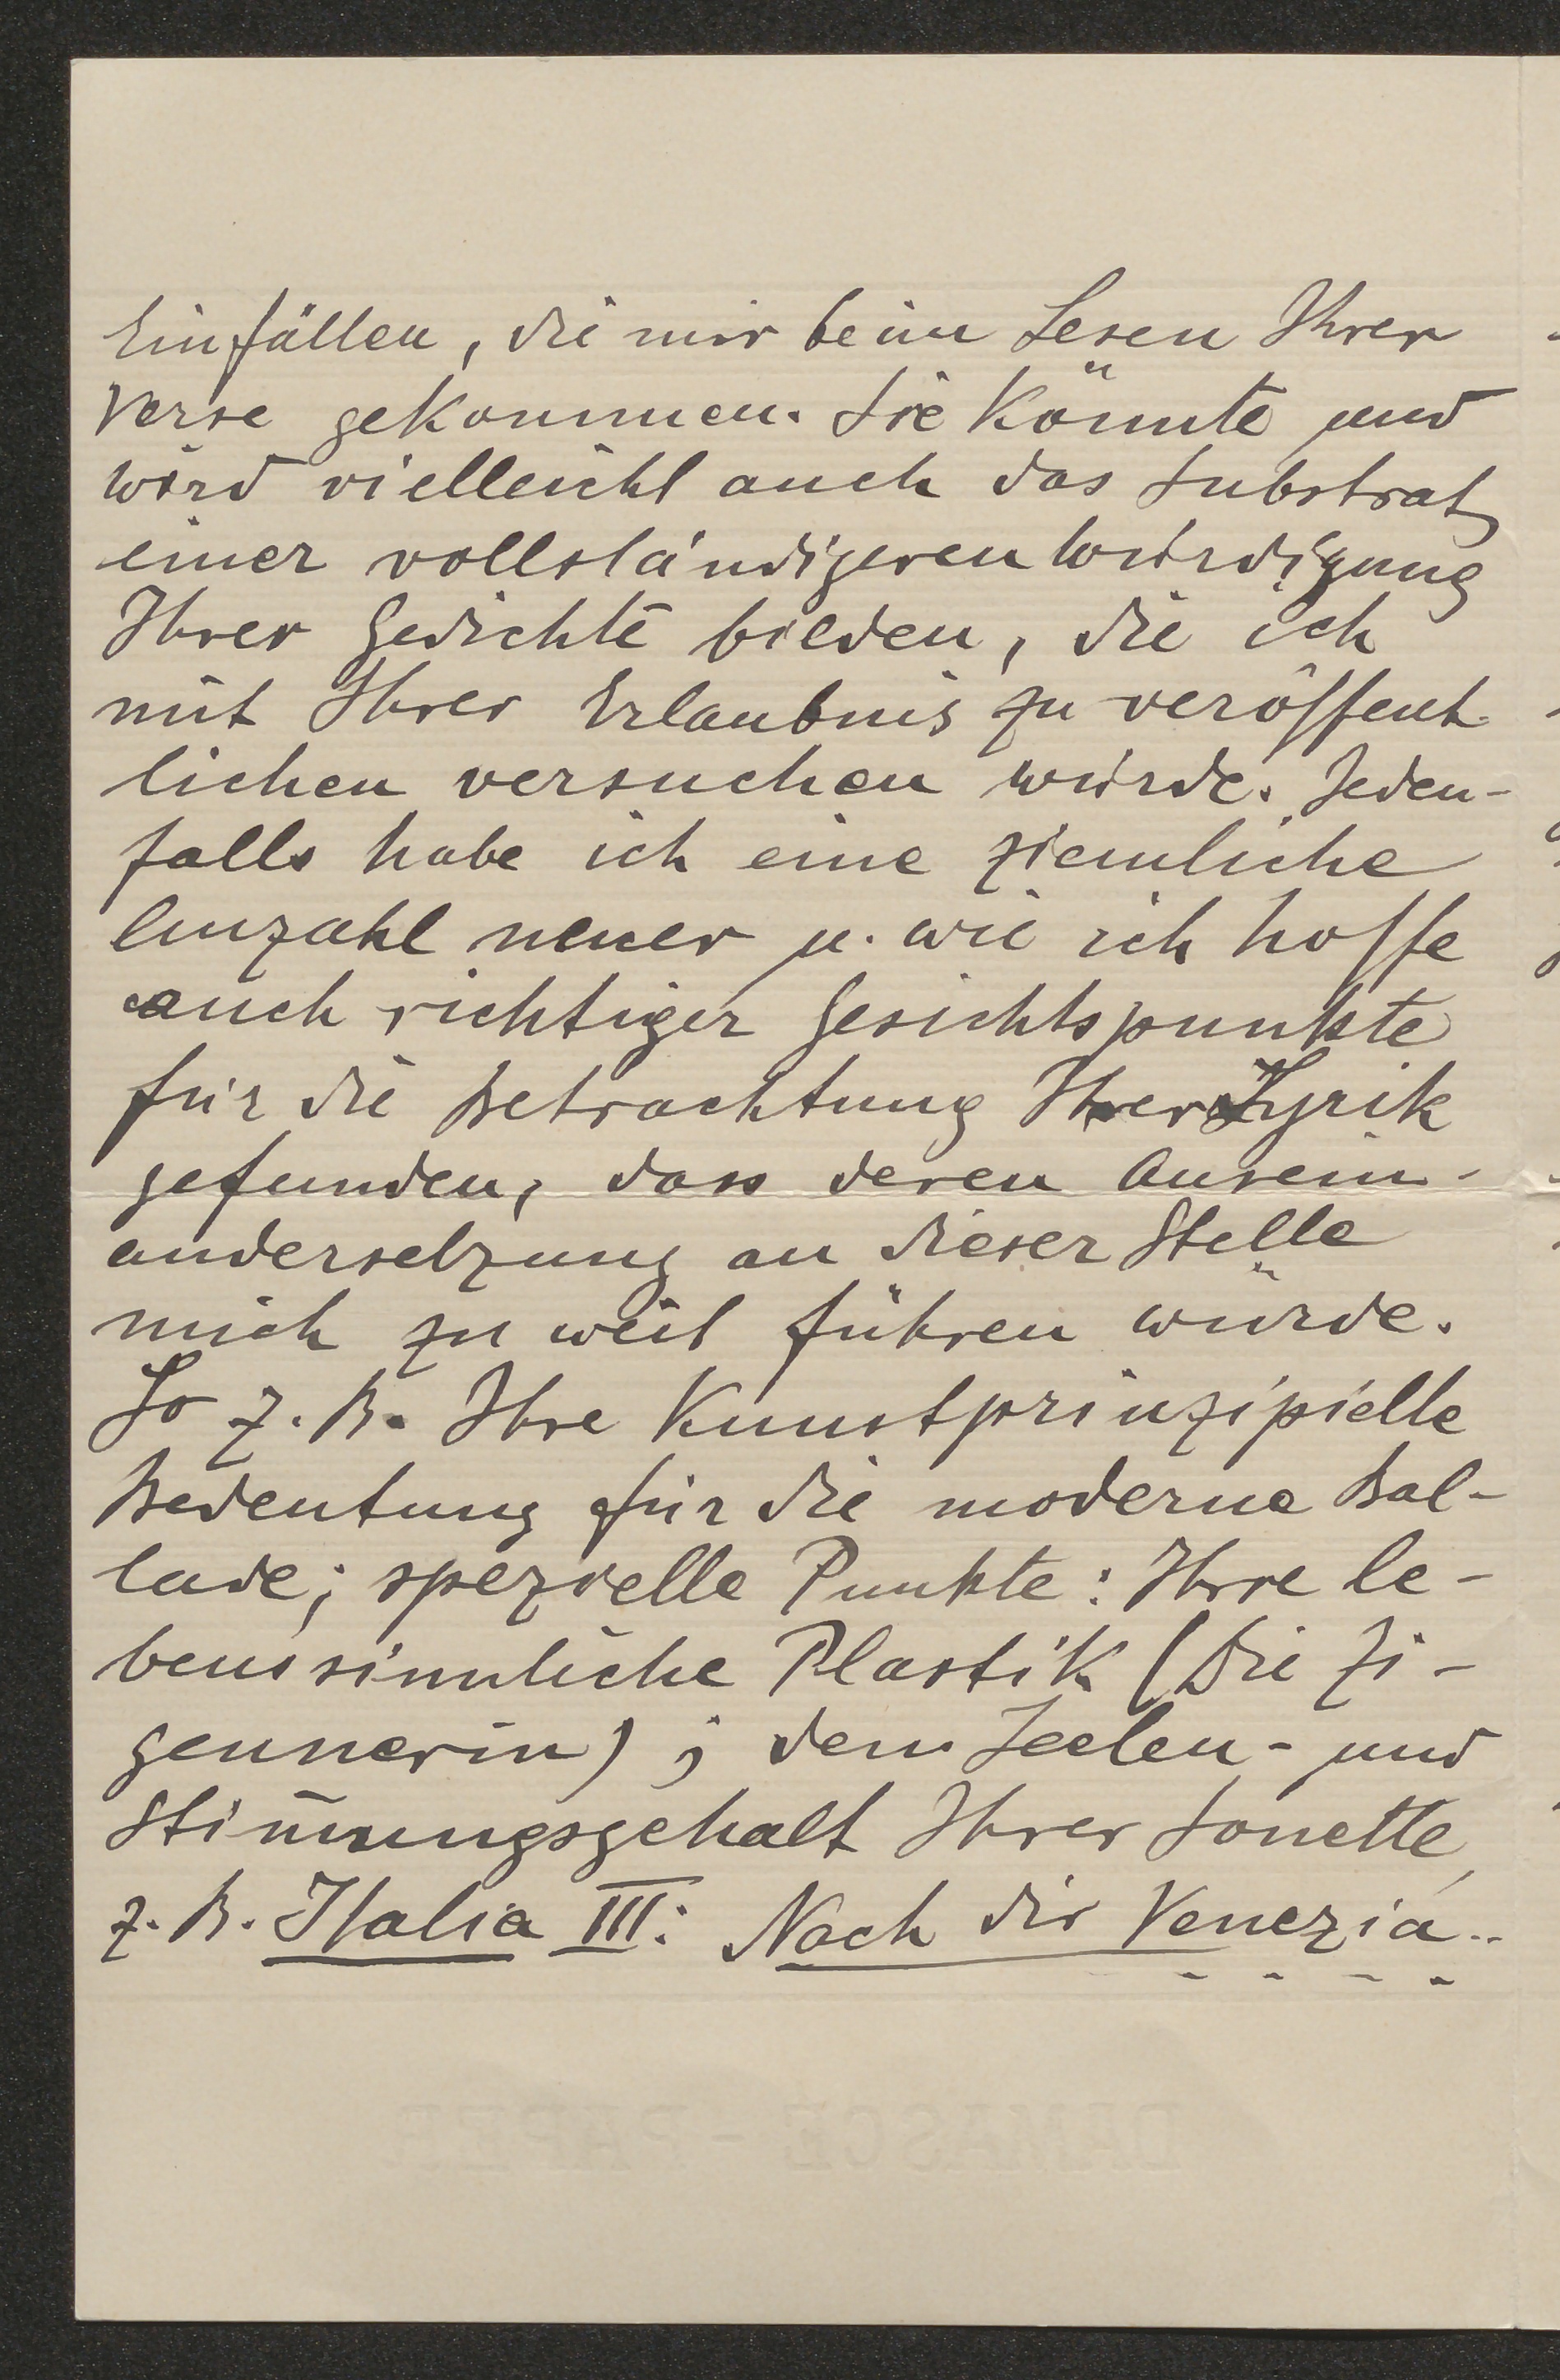 Einfällen, die mir beim Lesen Ihrer
Verse gekommen. Sie könnte und
wird vielleicht auch das Substrat
einer vollständigeren Würdigung
Ihrer Gedichte bilden, die ich
mit Ihrer Erlaubnis zu veröffent-
lichen versuchen würde. Jeden-
falls habe ich eine ziemliche
Anzahl neuer u. wie ich hoffe
auch richtiger Gesichtspunkte
für die Betrachtung Ihrer Lyrik
gefunden, dass deren Ausein-
andersetzung an dieser Stelle
mich zu weit führen würde.
So z. B. Ihre Kunstprinzipielle
Bedeutung für die moderne Bal-
lade; spezielle Punkte: Ihre le-
benssinnliche Plastik (Die Zi-
geunerin); dem Seelen- und
Stim̅ungsgehalt Ihrer Sonette,
z. B. Italia III: Nach dir Venezia..
DAMASCE - PAPER